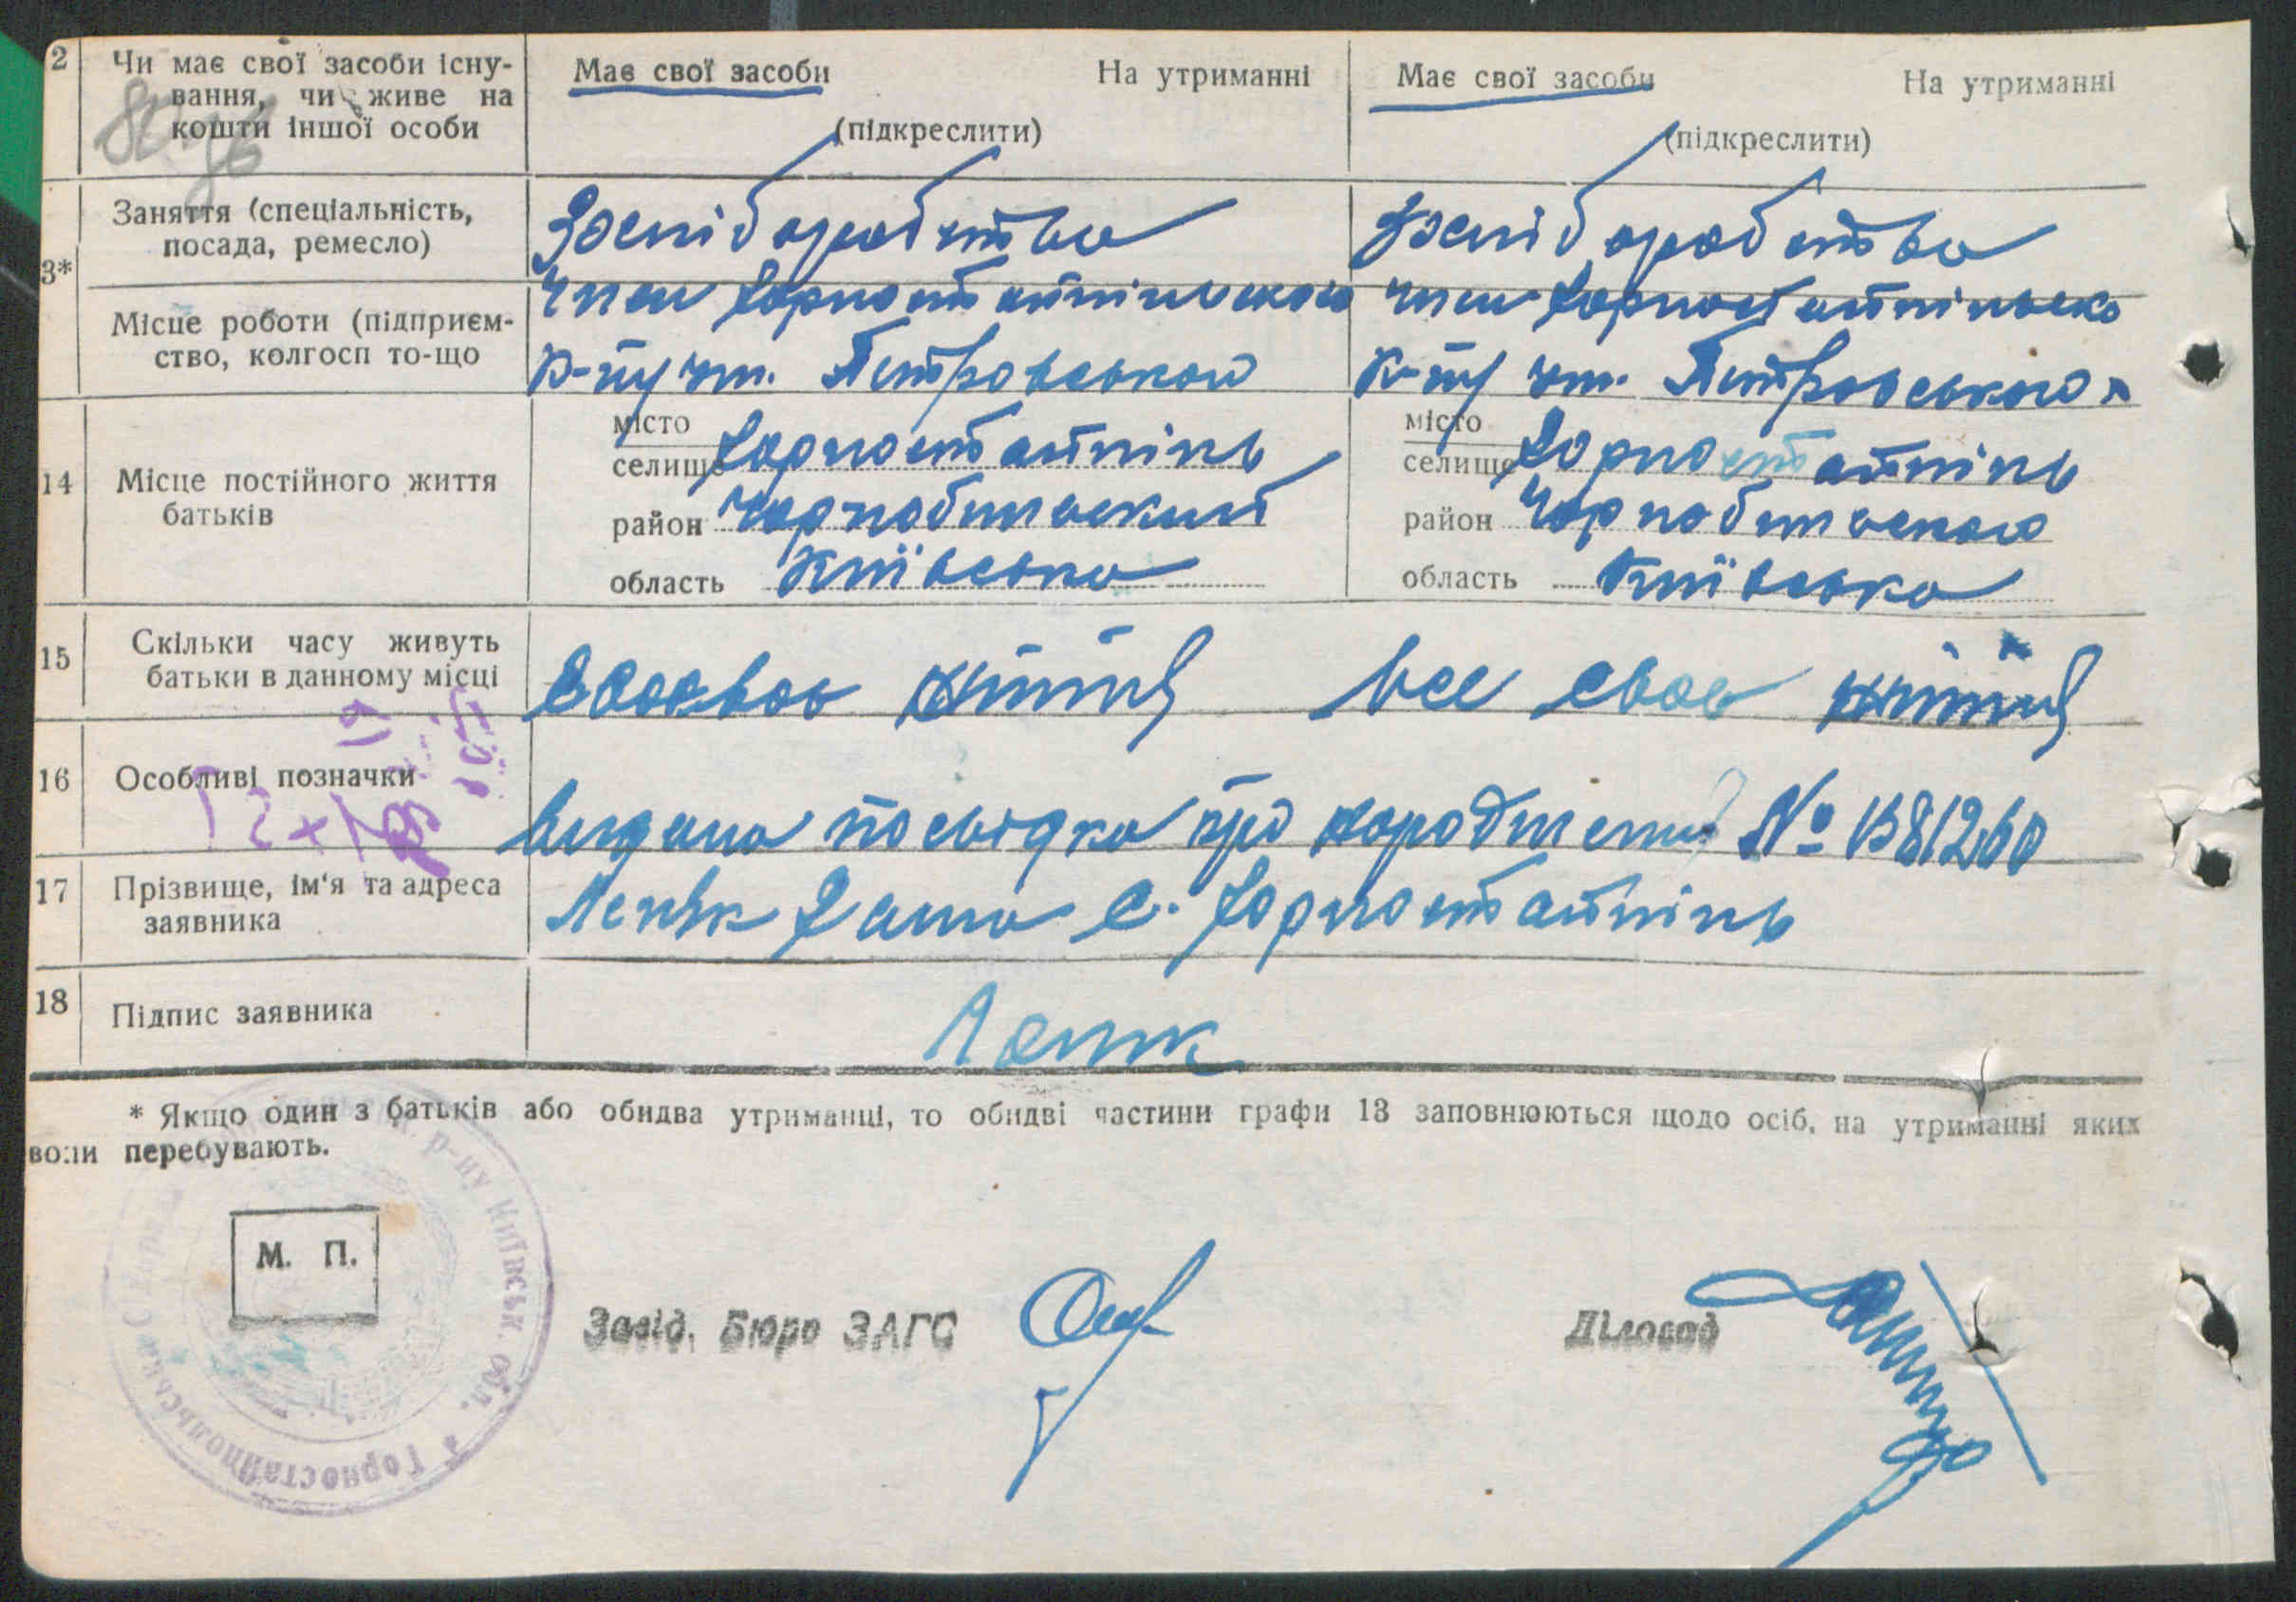 2 Чи має свої засоби існу-
вання, чи живе на
кошти іншої особи
Має свої засоби На утриманні
(підкреслити)
Має свої засоби На утриманні
(підкреслити)
3*
Заняття (спеціальність,
посада, ремесло)
Хліборобство
Хліборобство
Місце роботи (підприєм-
ство, колгосп то-що
член Горностайпільского
к-пу им. Петровського
член Горностайпільско
к-пу им. Петровського
14 Місце постійного життя
батьків
місто
селище Горностайпіль
район Чорнобильский
область Київська
місто
селище Горностайпіль
район Чорнобильского
область Київська
15 Скільки часу живуть
батьки в данному місці
життя все своє життя
16 Особливі позначки
видано посвідка про народження № 1381260
17 Прізвище, ім‘я та адреса
заявника
с. Горностайпіль
18 Підпис заявника
* Якщо один з батьків або обидва утриманці, то обидві частини графи 13 заповнюються щодо осіб, на утриманні яких
воли перебувають.
М. П.
р-ну Київськ. обл. * Горностайпольська
Завід. Бюро ЗАГС
Діловод